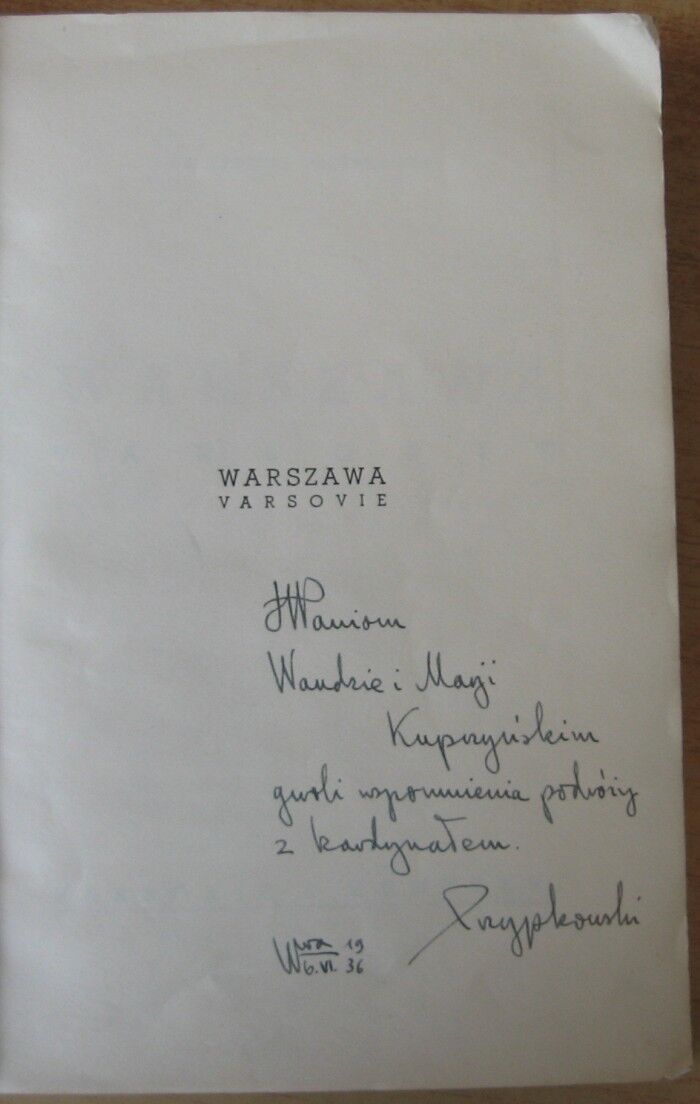 WARSZAWA
VARSOVIE
JWPaniom
Wandzie i Maryi
Kuprzyńskim
gwoli wspomnienia podróży
z kardynałem.
Przypkowski
Wwa 19
6.VI. 36